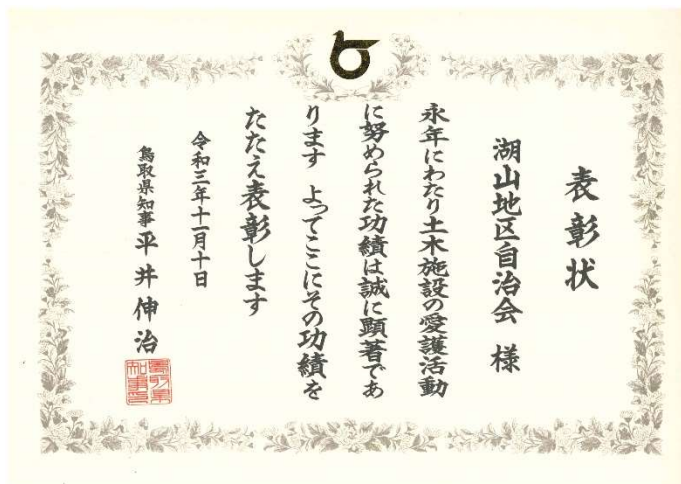 表彰状
湖山地区自治会 様
永年にわたり土木施設の愛護活動
に努められた功績は誠に顕著であ
ります よってここにその功績を
たたえ表彰します
令和三年十一月十日
鳥取県知事 平井伸治
鳥取県
知事印